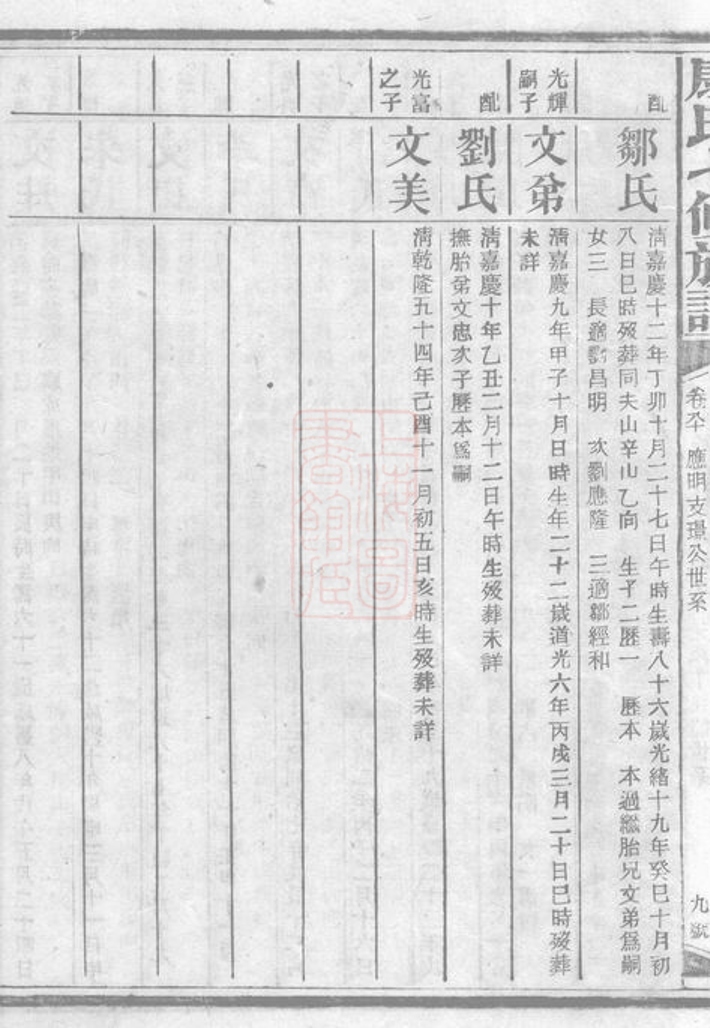 氏七修族譜
卷六 應明支璟公世系
九號
配
鄒氏
清嘉慶十二年丁卯十月二十七日午時生壽八十六嵗光緒十九年癸巳十月初
八日巳時歿葬同夫山辛山乙向 生子二歷一 歷本 本過繼胎兄文弟爲嗣
女三 長適劉昌明 次劉應隆 三適鄒經和
光輝
嗣子
文弟
清嘉慶九年甲子十月日時生年二十二嵗道光六年丙戌三月二十日巳時歿葬
未詳
配
劉氏
清嘉慶十年乙丑二月十二日午時生歿葬未詳
撫胎弟文忠次子歷本爲嗣
光富
之子
文美
清乾隆五十四年己酉十一月初五日亥時生歿葬未詳
上海圖
書館藏